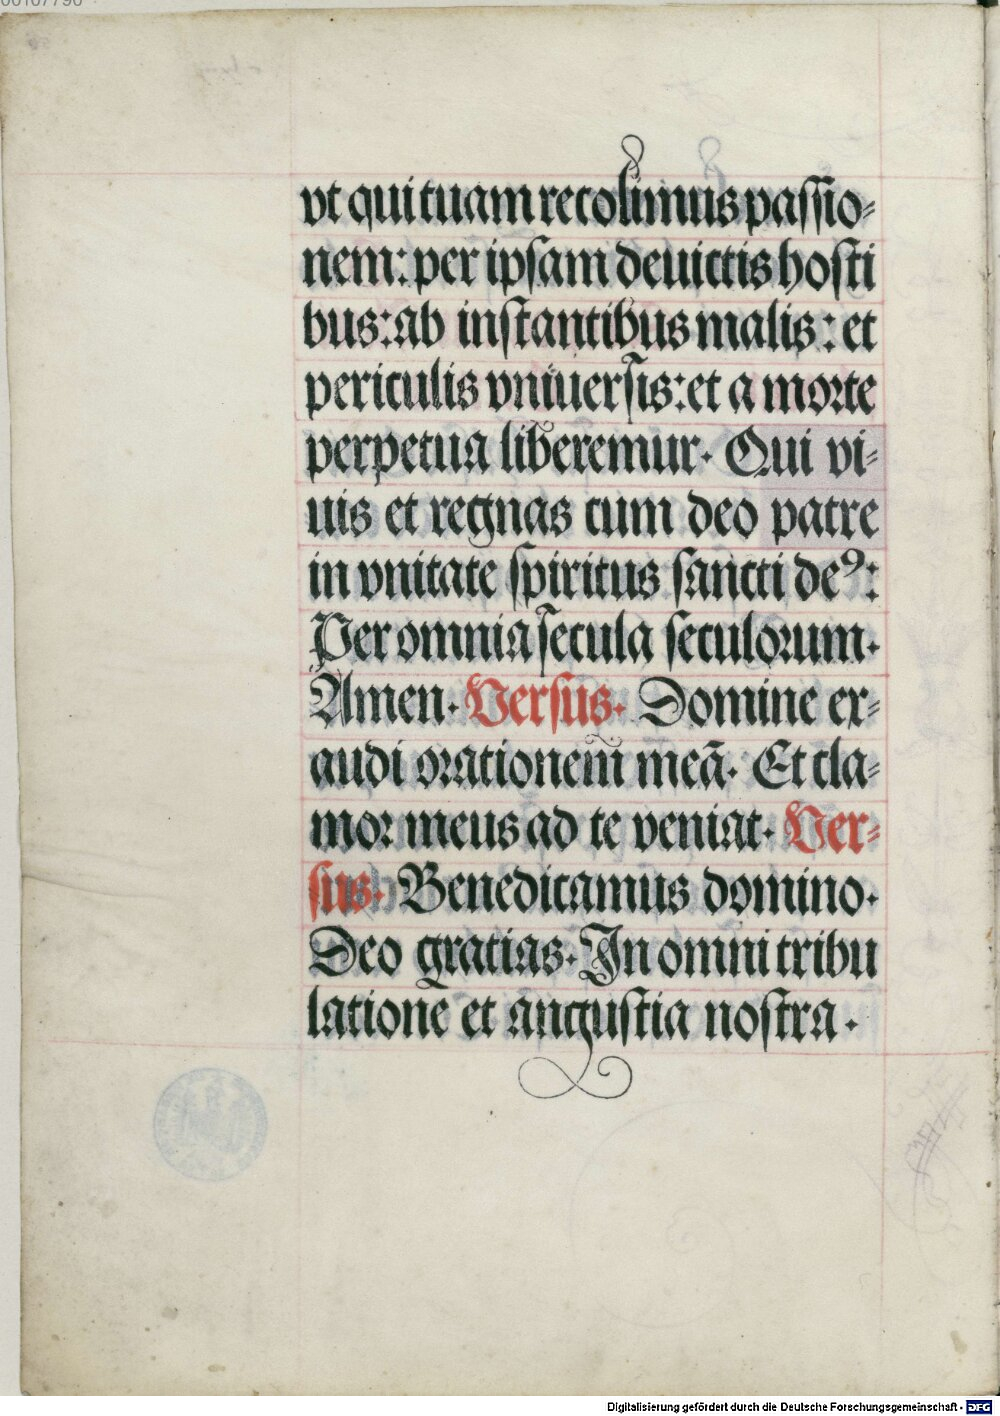 00107790
vt qui tuam recolimus passio⸗
nem: per ipsam deuictis hosti
bus: ab instantibus malis: et
periculis vniuersis: et a morte
perpetua liberemur. Qui vi⸗
uis et regnas cum deo patre
in vnitate spiritus sancti deꝰ:
Per omnia secula seculorum.
Amen. Versus. Domine ex⸗
audi orationem meā. Et cla⸗
mor meus ad te veniat. Ver⸗
sus. Benedicamus domino.
Deo gratias. In omni tribu
latione et angustia nostra.
Digitalisierung gefördert durch die Deutsche Forschungsgemeinschaft - DFG